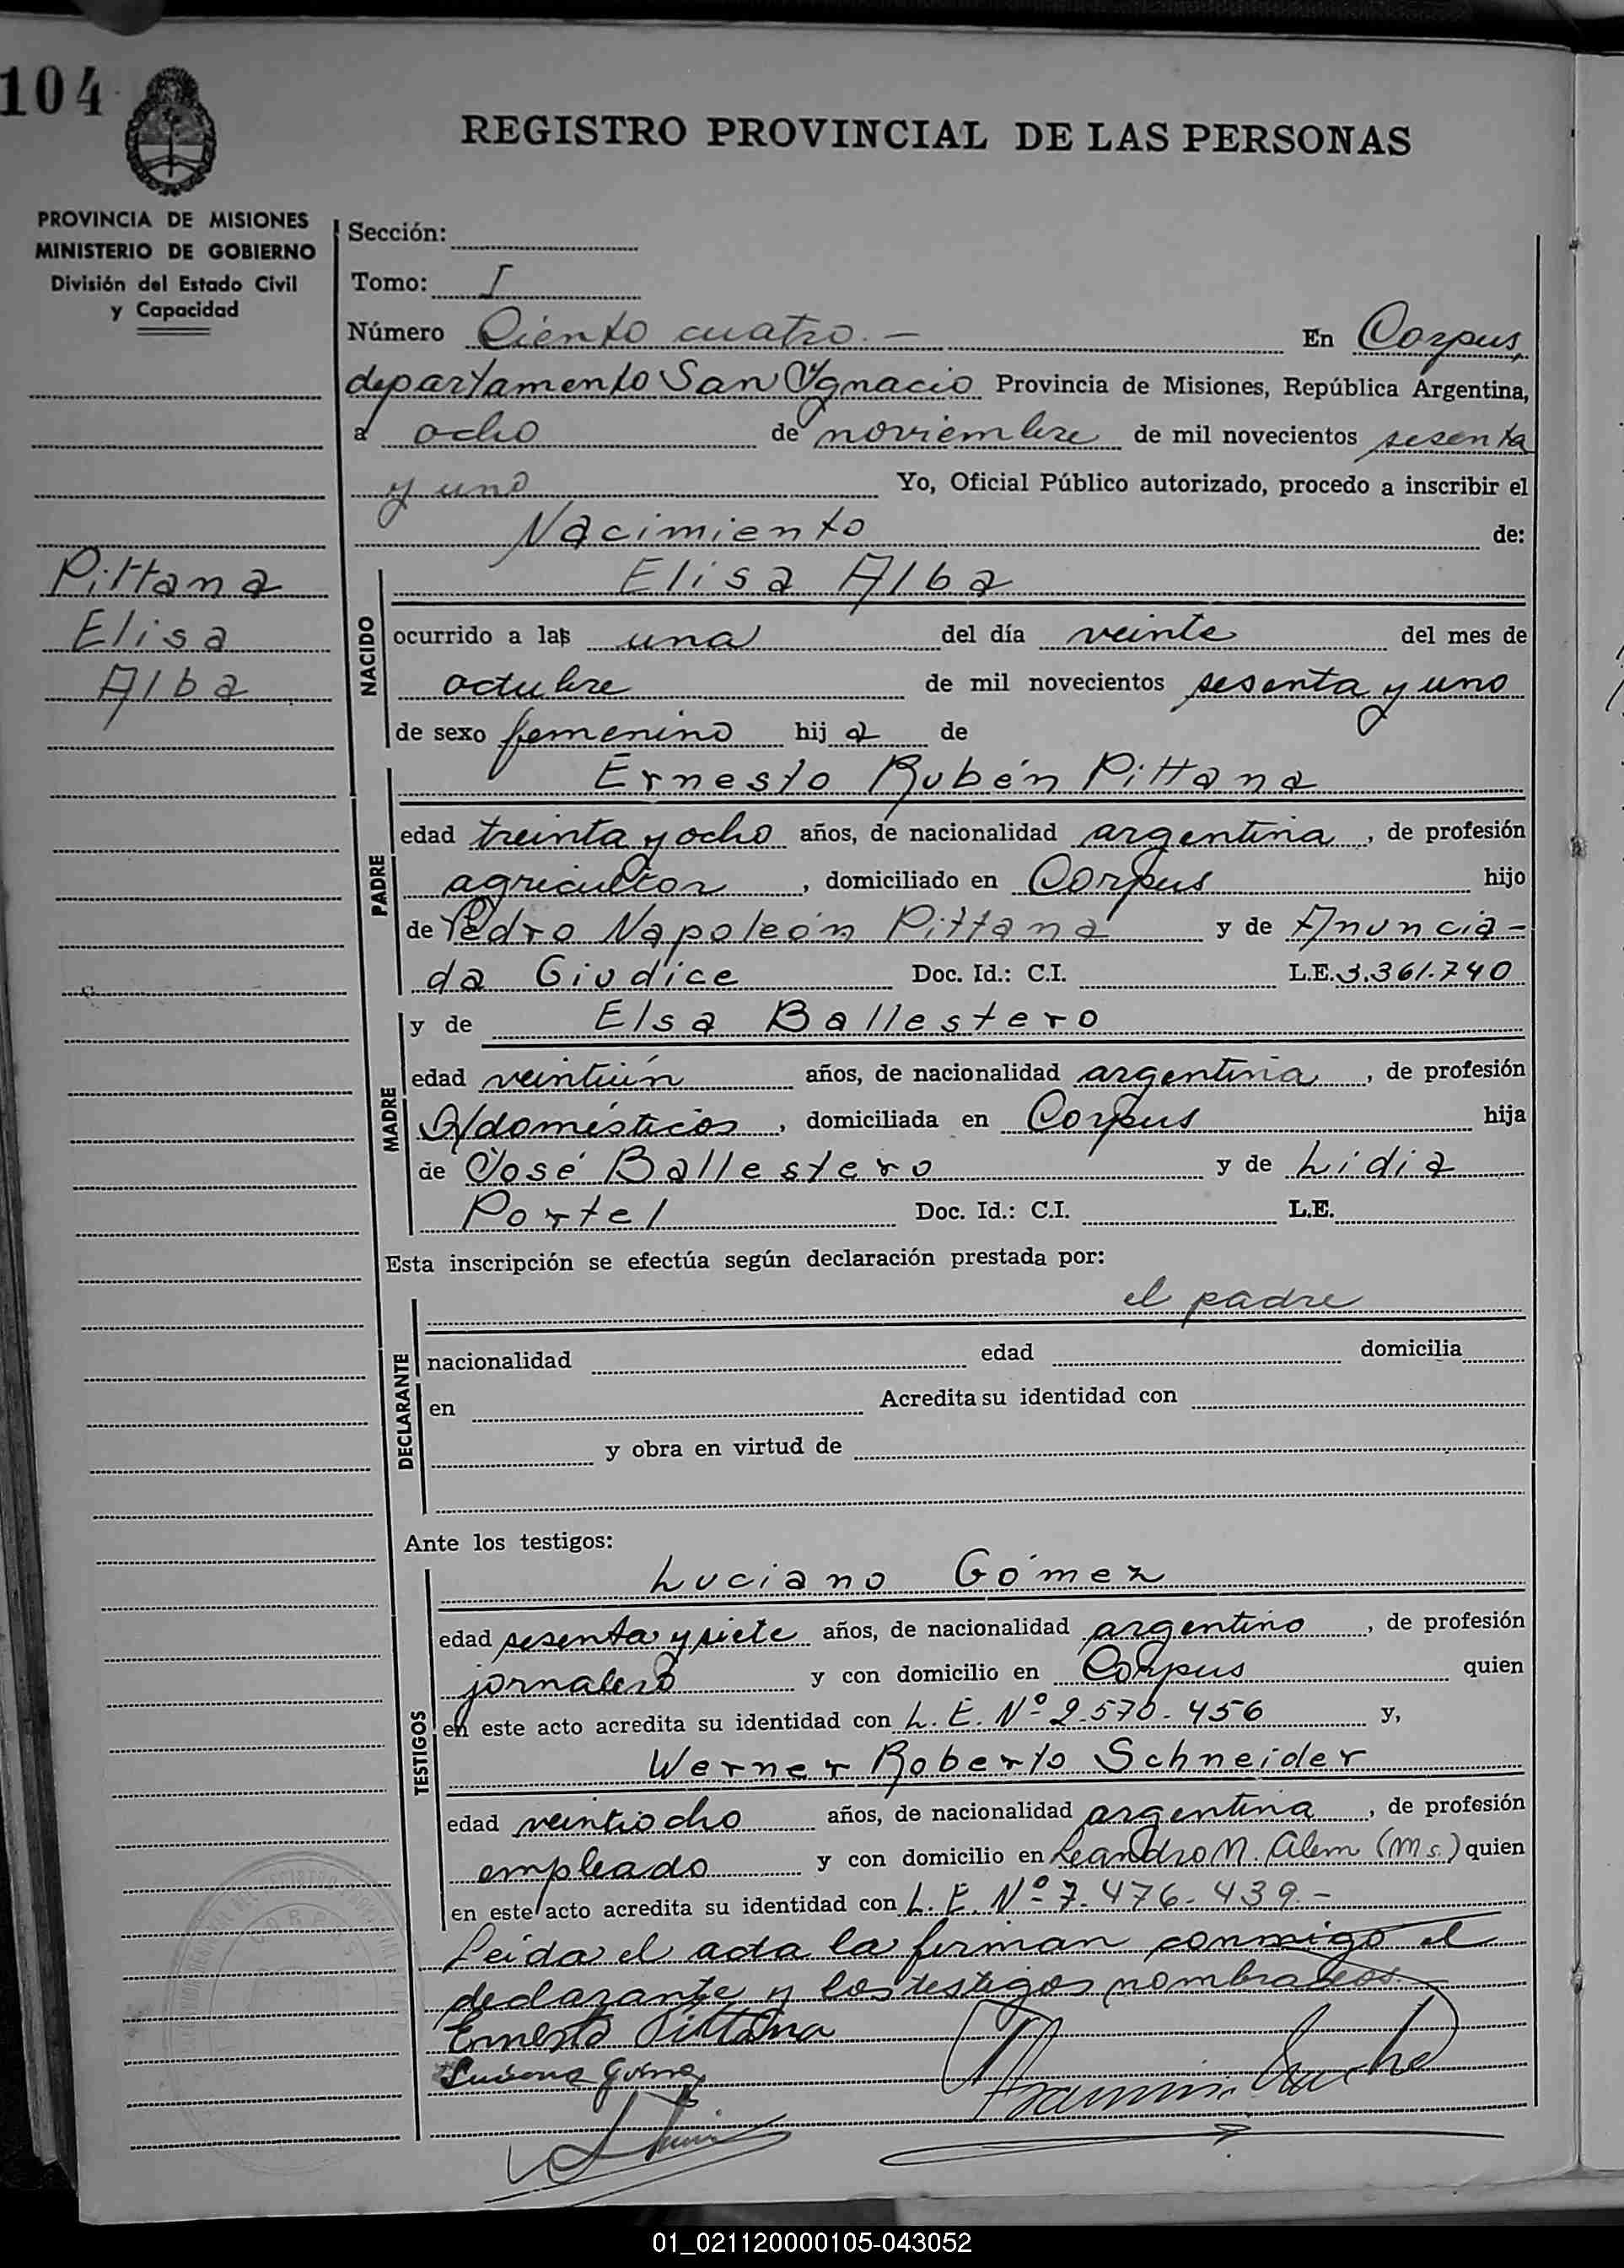 104
REGISTRO PROVINCIAL DE LAS PERSONAS
PROVINCIA DE MISIONES
MINISTERIO DE GOBIERNO
División del Estado Civil
y Capacidad
Pittana
Elisa
Alba
Sección:
Tomo: I
Número Ciento cuatro.- En Corpus,
departamento San Ygnacio Provincia de Misiones, República Argentina,
a ocho de noviembre de mil novecientos sesenta
y uno Yo, Oficial Público autorizado, procedo a inscribir el
Nacimiento de:
NACIDO
Elisa Alba
ocurrido a las una del día veinte del mes de
octubre de mil novecientos sesenta y uno
de sexo femenino hija de
PADRE
Ernesto Rubén Pittana
edad treinta y ocho años, de nacionalidad argentina, de profesión
agricultor, domiciliado en Corpus hijo
de Pedro Napoleón Pittana y de Anuncia-
da Giudice Doc. Id.: C.I. L.E. 3.361.740
MADRE
y de Elsa Ballestero
edad veintiún años, de nacionalidad argentina, de profesión
Q/domésticos, domiciliada en Corpus hija
de José Ballestero y de Lidia
Portel Doc. Id.: C.I. L.E.
Esta inscripción se efectúa según declaración prestada por:
DECLARANTE
el padre
nacionalidad edad domicilia
en Acredita su identidad con
y obra en virtud de
Ante los testigos:
TESTIGOS
Luciano Gómez
edad sesenta y siete años, de nacionalidad argentino, de profesión
jornalero y con domicilio en Corpus quien
en este acto acredita su identidad con L. E. Nº 2.570.456 y,
Werner Roberto Schneider
edad veintiocho años, de nacionalidad argentina, de profesión
empleado y con domicilio en Leandro N. Alem (Ms.) quien
en este acto acredita su identidad con L. E. Nº 7.476.439.-
Leida el acta la firman conmigo el
declarante y los testigos nombrados.
Ernesto Pittana
Luciano Gómez
01_021120000105-043052